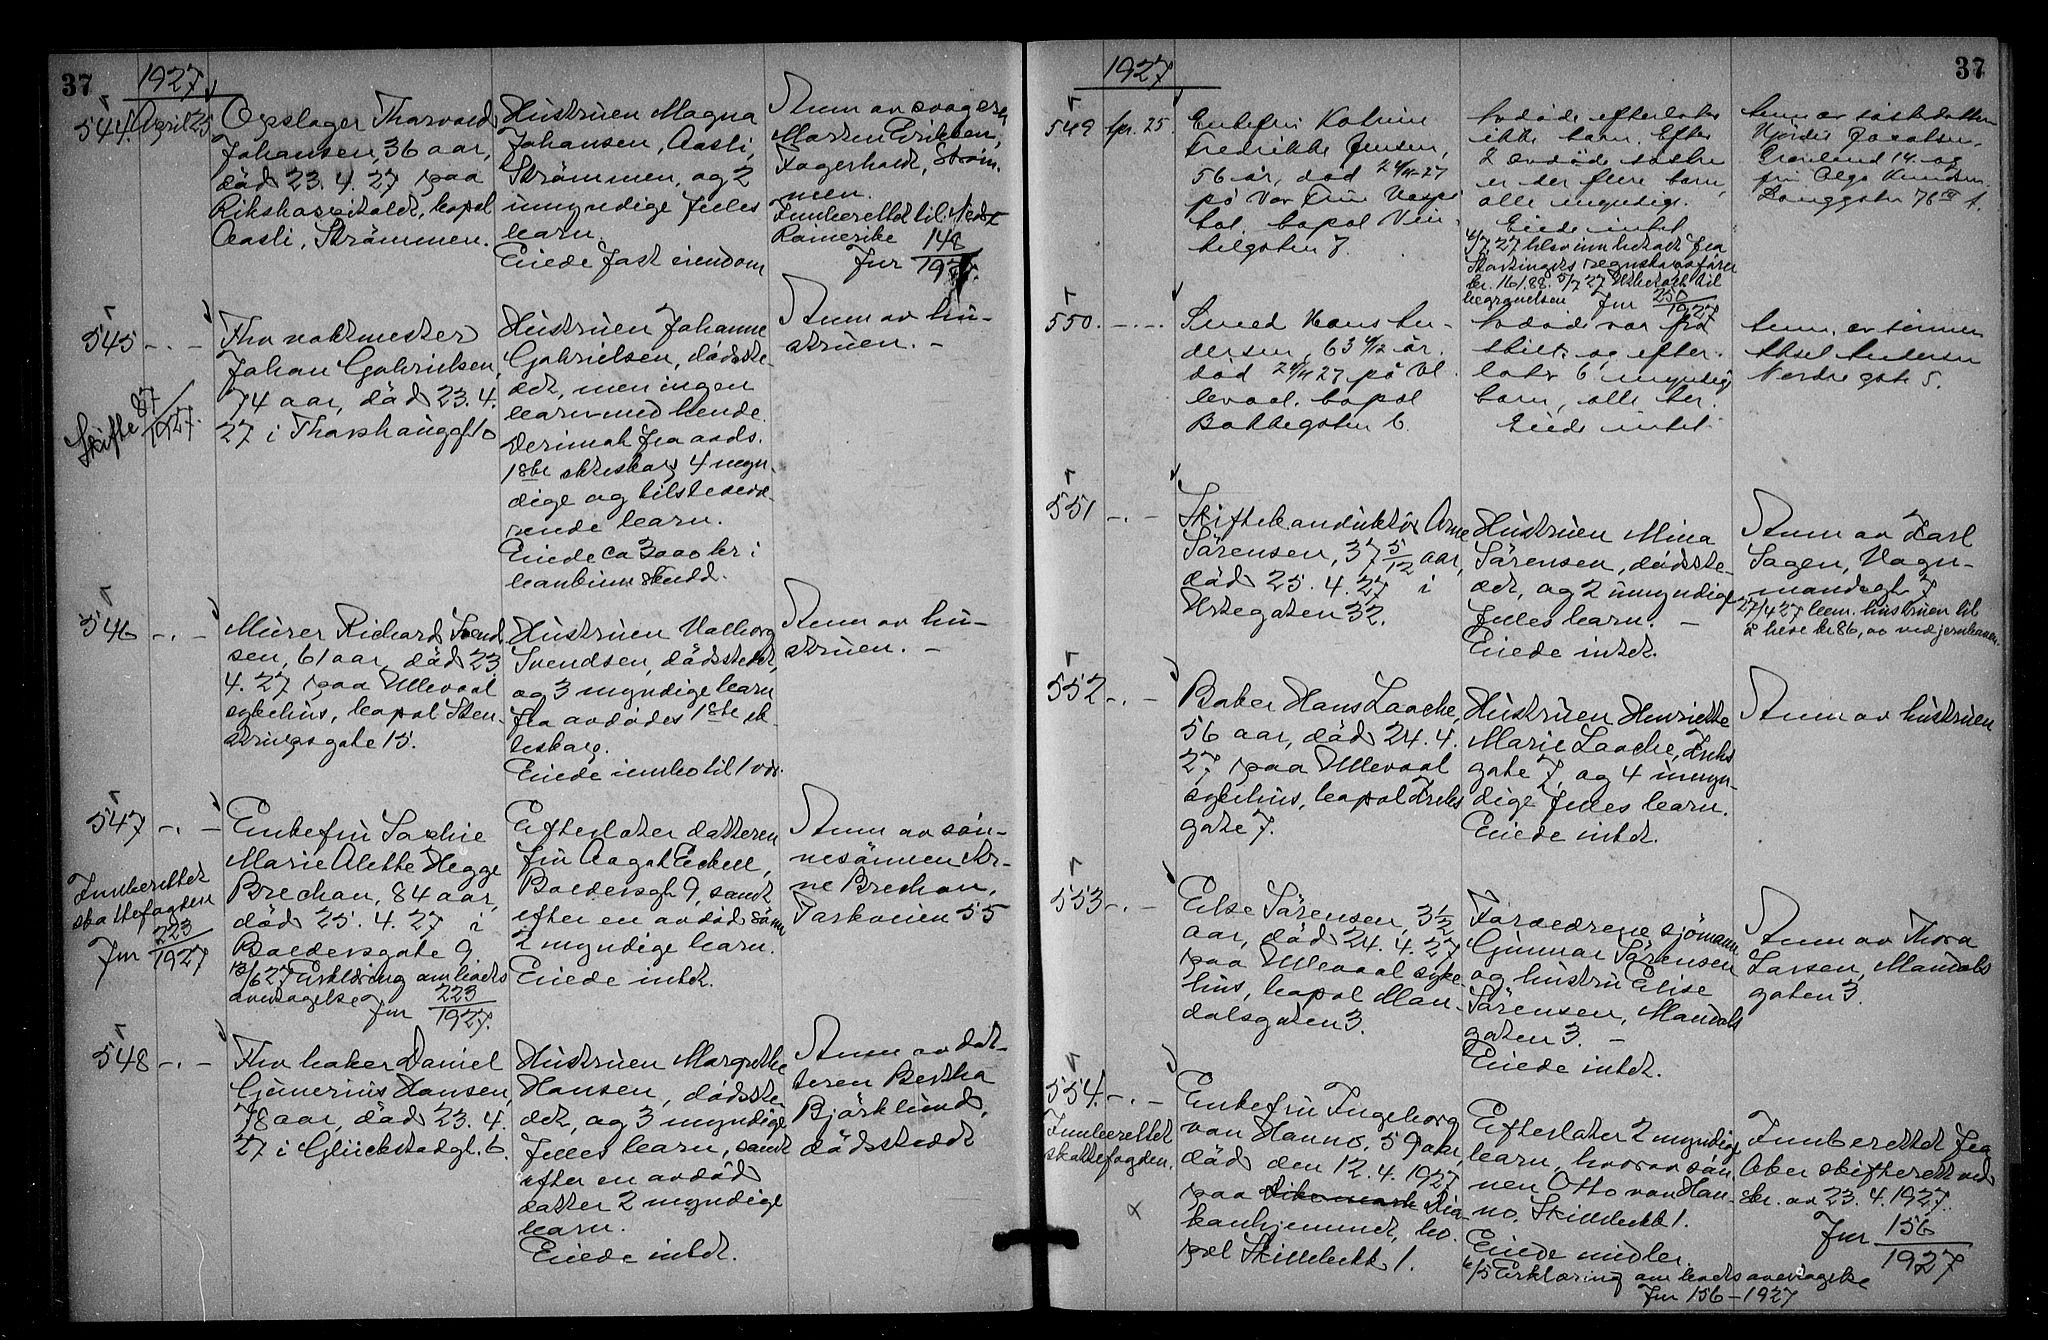 37
1927
544. April 25
Opslager Thorvald
Johansen, 36 aar,
död 23. 4. 27 paa
Rikshospitalet, bopæl
Aasli, Strömmen.
Hustruen Magna
Johansen, Aasli,
Strömmen, og 2
umyndige felles
barn.
Eiede fast eiendom
Anm av svogeren
Morten Eriksen,
Fagerholt, Ström-
men.
Innberettet til Nedre
Romerike 148
Jnr 1927.
545 -.-
Skifte 87
1927.
Fhv vaktmester
Johan Gabrielsen,
74 aar, död 23. 4.
27 i Thorshauggt 10
Hustruen Johanne
Gabrielsen, dödsste-
det, men ingen
barn med hende.
Derimot fra avds.
1ste ekteskap 4 myn-
dige og tilstedevæ-
rende barn.
Eiede ca 3000 kr i
bankinnskudd.
Anm av hu-
struen. -
546 -.-
Murer Richard Svend-
sen, 61 aar, död 23.
4. 27 paa Ullevaal
sykehus, bopæl Sten-
strupsgate 15.
Hustruen Valborg
Svendsen, dödsstedet,
og 3 myndige barn
fra avdödes 1ste ek-
teskap.
Eiede innbo til 1 vær.
Anm av hu-
struen. -
547 -.-
Innberettet
skattefogden
223
Jnr 1927
Enkefru Sophie
Marie Alette Hegge
Brechan, 84 aar,
död 25. 4. 27 i
Baldersgate 9
/6 27 Erklæring om boets
overtagelse 223
Jnr 1927.
Efterlater datteren
fru Aagot Eckell,
Baldersgt 9, samt
efter en avdöd sönn
2 myndige barn.
Eiede intet.
Anm av sön-
nesönnen Ar-
ne Brechan,
Parkveien 55
548 -.-
Fhv baker Daniel
Gunerius Hansen,
78 aar, död 23. 4.
27 i Glückstadgt. 6.
Hustruen Margrethe
Hansen, dödsste-
det, og 3 myndige
felles barn, samt
efter en avdöd
datter 2 myndige
barn.
Eiede intet.
Anm av dat-
teren Bertha
Björklund,
dödsstedet
1927
37
549 Apr. 25.
Enkefru Katrine
Fredrikke Jensen,
56 år, död 24/4-27
på Vor Frue Hospi-
tal. bopæl Ven-
telgaten 7.
Avdöde efterlater
ikke barn. Efter
2 avdöde söstre
er der flere barn,
alle myndige.
Eiede intet
4/7 27 blev innbetalt fra
Stortingets regnskapsförer
kr. 161.88. 5/7 27 utbetalt til
begravelsen Jnr 250
1927
Anm av sösterdatteren
Hjördis Jacobsen,
Grönland 14. og
fru Olga Knudsen,
Langgaten 76 III
550. -.-
Smed Hans An-
dersen, 63 4/12 år.
död 24/4 27 på Ul-
levaal. bopæl
Bakkegaten 6.
Avdöde var fra-
skilt og efter-
later 6 myndige
barn, alle her.
Eiede intet.
Anm. av sönnen
Aksel Andersen
Nordregate 5.
551 -.-
Skiftekonduktör Arne
Sörensen, 37 5/12 aar,
död 25. 4. 27 i
Urtegaten 32.
Hustruen Mina
Sörensen, dödsste-
det, og 2 umyndige
felles barn. -
Eiede intet.
Anm av Karl
Sagen, Vogn-
mandsgt 7
27/4 27 bem. hustruen til
å heve kr 86,00 ved jernbanen.
552 -.-
Baker Hans Laache,
56 aar, död 24. 4.
27 paa Ullevaal
sykehus, bopæl Friis
gate 7.
Hustruen Henriette
Marie Laache, Friis
gate 7, og 4 umyn-
dige felles barn.
Eiede intet.
Anm av hustruen
553 -.-
Else Sörensen, 3 1/2
aar, död 24. 4. 27
paa Ullevaal syke-
hus, bopæl Man-
dalsgaten 3.
Forældrene sjömann
Gunnar Sörensen
og hustru Elise
Sörensen, Mandals
gaten 3. -
Eiede intet.
Anm av Thora
Larsen, Mandals
gaten 3.
554. -.-
Innberettet
skattefogden.
x
Enkefru Ingeborg
von Hanno, 59 aar,
död den 12. 4. 1927
paa Dikemark Dia-
konhjemmet, bo-
pæl Skillebekk 1.
Efterlater 2 myndige
barn, hvorav sön-
nen Otto von Han-
no, Skillebekk 1.
Eiede midler.
6/5 Erklæring om boets overtagelse
Jnr 156-1927
Innberettet fra
Aker skifterett ved
skr. av 23. 4. 1927.
Jnr 156
1927